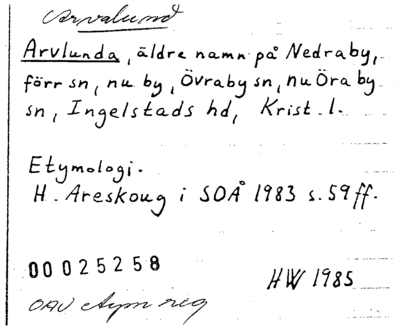 Arvalund
Arvlunda, äldre namn på Nedraby,
förr sn, nu by, Övraby sn, nu Öraby
sn, Ingelstads hd, Krist. l.
Etymologi.
H. Areskoug i SOÅ 1983 s. 59 ff.
00025258
HW 1985
OAU